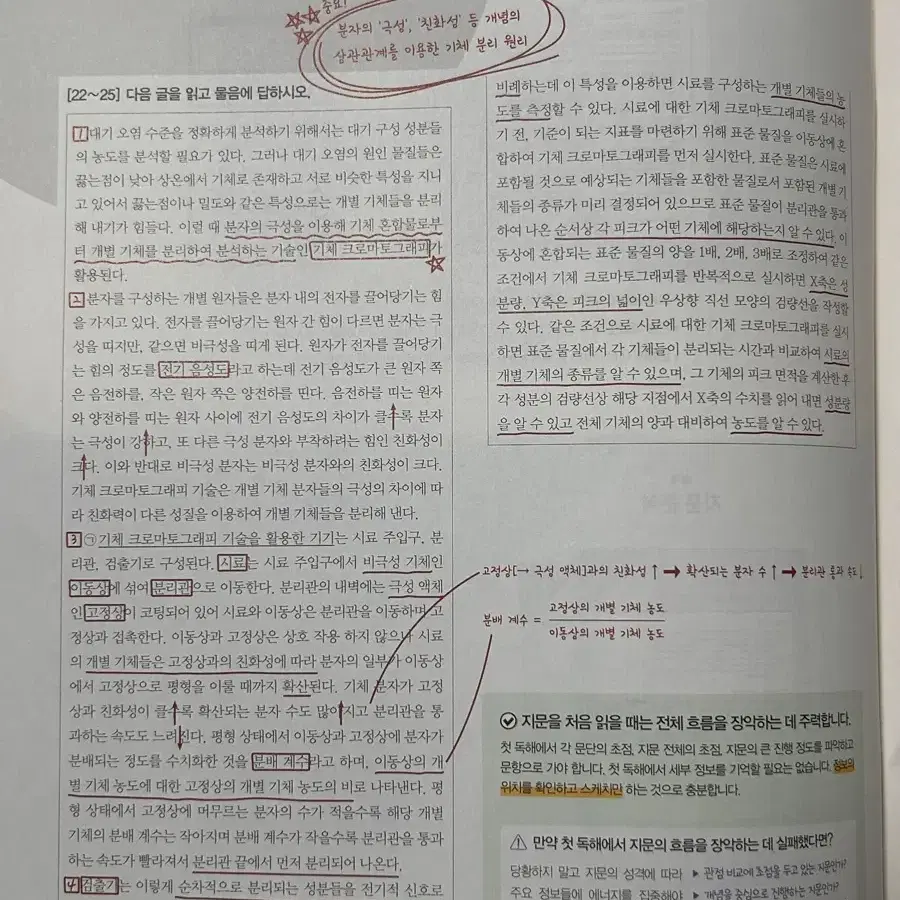 중요!
분자의 '극성', '친화성' 등 개념의
상관관계를 이용한 기체 분리 원리
[22~25] 다음 글을 읽고 물음에 답하시오.
1 대기 오염 수준을 정확하게 분석하기 위해서는 대기 구성 성분들
의 농도를 분석할 필요가 있다. 그러나 대기 오염의 원인 물질들은
끓는점이 낮아 상온에서 기체로 존재하고 서로 비슷한 특성을 지니
고 있어서 끓는점이나 밀도와 같은 특성으로는 개별 기체들을 분리
해 내기가 힘들다. 이럴 때 분자의 극성을 이용해 기체 혼합물로부
터 개별 기체를 분리하여 분석하는 기술인 기체 크로마토그래피가
활용된다.
2 분자를 구성하는 개별 원자들은 분자 내의 전자를 끌어당기는 힘
을 가지고 있다. 전자를 끌어당기는 원자 간 힘이 다르면 분자는 극
성을 띠지만, 같으면 비극성을 띠게 된다. 원자가 전자를 끌어당기
는 힘의 정도를 전기 음성도라고 하는데 전기 음성도가 큰 원자 쪽
은 음전하를, 작은 원자 쪽은 양전하를 띤다. 음전하를 띠는 원자
와 양전하를 띠는 원자 사이에 전기 음성도의 차이가 클수록 분자
는 극성이 강하고, 또 다른 극성 분자와 부착하려는 힘인 친화성이
크다. 이와 반대로 비극성 분자는 비극성 분자와의 친화성이 크다.
기체 크로마토그래피 기술은 개별 기체 분자들의 극성의 차이에 따
라 친화력이 다른 성질을 이용하여 개별 기체들을 분리해 낸다.
3 ㉠기체 크로마토그래피 기술을 활용한 기기는 시료 주입구, 분
리관, 검출기로 구성된다. 시료는 시료 주입구에서 비극성 기체인
이동상에 섞여 분리관으로 이동한다. 분리관의 내벽에는 극성 액체
인 고정상이 코팅되어 있어 시료와 이동상은 분리관을 이동하며 고
정상과 접촉한다. 이동상과 고정상은 상호 작용 하지 않으나 시료
의 개별 기체들은 고정상과의 친화성에 따라 분자의 일부가 이동상
에서 고정상으로 평형을 이룰 때까지 확산된다. 기체 분자가 고정
상과 친화성이 클수록 확산되는 분자 수도 많아지고 분리관을 통
과하는 속도도 느려진다. 평형 상태에서 이동상과 고정상에 분자가
분배되는 정도를 수치화한 것을 분배 계수라고 하며, 이동상의 개
별 기체 농도에 대한 고정상의 개별 기체 농도의 비로 나타낸다. 평
형 상태에서 고정상에 머무르는 분자의 수가 적을수록 해당 개별
기체의 분배 계수는 작아지며 분배 계수가 작을수록 분리관을 통과
하는 속도가 빨라져서 분리관 끝에서 먼저 분리되어 나온다.
4 검출기는 이렇게 순차적으로 분리되는 성분들을 전기적 신호로
비례하는데 이 특성을 이용하면 시료를 구성하는 개별 기체들의 농
도를 측정할 수 있다. 시료에 대한 기체 크로마토그래피를 실시하
기 전, 기준이 되는 지표를 마련하기 위해 표준 물질을 이동상에 혼
합하여 기체 크로마토그래피를 먼저 실시한다. 표준 물질은 시료에
포함될 것으로 예상되는 기체들을 포함한 물질로서 포함된 개별 기
체들의 종류가 미리 결정되어 있으므로 표준 물질이 분리관을 통과
하여 나온 순서상 각 피크가 어떤 기체에 해당하는지 알 수 있다. 이
동상에 혼합되는 표준 물질의 양을 1배, 2배, 3배로 조정하여 같은
조건에서 기체 크로마토그래피를 반복적으로 실시하면 X축은 성
분량, Y축은 피크의 넓이인 우상향 직선 모양의 검량선을 작성할
수 있다. 같은 조건으로 시료에 대한 기체 크로마토그래피를 실시
하면 표준 물질에서 각 기체들이 분리되는 시간과 비교하여 시료의
개별 기체의 종류를 알 수 있으며, 그 기체의 피크 면적을 계산한 후
각 성분의 검량선상 해당 지점에서 X축의 수치를 읽어 내면 성분량
을 알 수 있고 전체 기체의 양과 대비하여 농도를 알 수 있다.
고정상[→ 극성 액체]과의 친화성 ↑ → 확산되는 분자 수 ↑ → 분리관 통과 속도 ↓
분배 계수 = 고정상의 개별 기체 농도
이동상의 개별 기체 농도
지문을 처음 읽을 때는 전체 흐름을 장악하는 데 주력합니다.
첫 독해에서 각 문단의 초점, 지문 전체의 초점, 지문의 큰 진행 정도를 파악하고
문항으로 가야 합니다. 첫 독해에서 세부 정보를 기억할 필요는 없습니다. 정보의
위치를 확인하고 스케치만 하는 것으로 충분합니다.
만약 첫 독해에서 지문의 흐름을 장악하는 데 실패했다면?
당황하지 말고 지문의 성격에 따라 ▶ 관점 비교에 초점을 두고 있는 지문인가?
주요 정보들에 에너지를 집중해야 ▶ 개념을 중심으로 진행하는 지문인가?